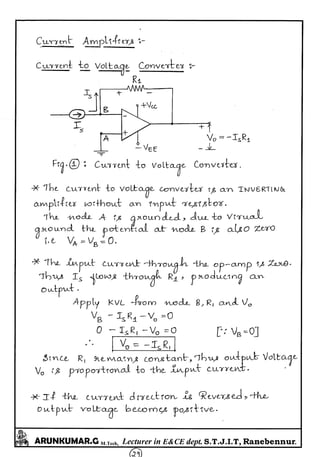 Current Amplifiers :-
Current to Voltage Converter :-
R1
+ -
Is
B
+Vcc
-
Is
A
+
+
Vo = -IsR1
-VEE
-
Fig.① : Current to Voltage Converter.
* The current to voltage converter is an INVERTING
amplifier without an input resistor.
The node A is grounded, due to Virtual
ground the potential at node B is also zero
i.e VA = VB = 0.
* The input current through the op-amp is zero.
Thus Is flows through R1, producing an
output.
Apply KVL from node B, R1 and Vo
VB - IsR1 - Vo = 0
0 - IsR1 - Vo = 0 [∵ VB = 0]
∴ Vo = -IsR1
Since R1 remains constant, Thus output Voltage
Vo is proportional to the input current.
* If the current direction is Reversed, the
output voltage becomes positive.
ARUNKUMAR.G M.Tech, Lecturer in E&CE dept. S.T.J.I.T, Ranebennur.
(29)